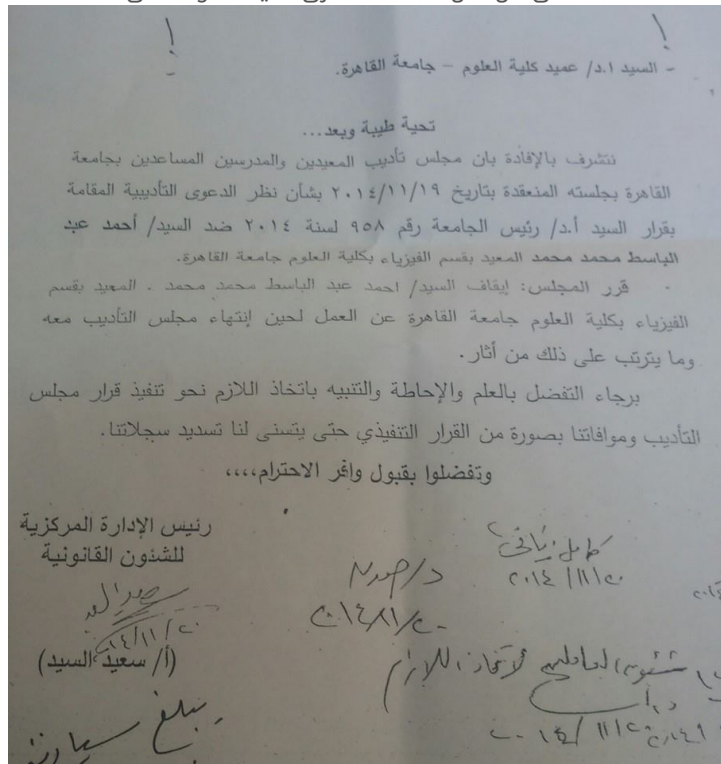 - السيد ا.د/ عميد كلية العلوم – جامعة القاهرة.
تحية طيبة وبعد...
نتشرف بالإفادة بان مجلس تأديب المعيدين والمدرسين المساعدين بجامعة
القاهرة بجلسته المنعقدة بتاريخ ٢٠١٤/١١/١٩ بشأن نظر الدعوى التأديبية المقامة
بقرار السيد أ.د/ رئيس الجامعة رقم ٩٥٨ لسنة ٢٠١٤ ضد السيد/ أحمد عبد
الباسط محمد محمد المعيد بقسم الفيزياء بكلية العلوم جامعة القاهرة.
قرر المجلس: إيقاف السيد/ احمد عبد الباسط محمد محمد . المعيد بقسم
الفيزياء بكلية العلوم جامعة القاهرة عن العمل لحين إنتهاء مجلس التأديب معه
وما يترتب على ذلك من أثار.
برجاء التفضل بالعلم والإحاطة والتنبيه باتخاذ اللازم نحو تنفيذ قرار مجلس
التأديب وموافاتنا بصورة من القرار التنفيذي حتى يتسنى لنا تسديد سجلاتنا.
وتفضلوا بقبول وافر الاحترام،،،،
رئيس الإدارة المركزية
للشئون القانونية
(أ/ سعيد السيد)
٢٠١٤/١١/٢٠
٢٠١٤/١١/٢٠
شئون العاملين لاتخاذ اللازم
يبلغ سيادته